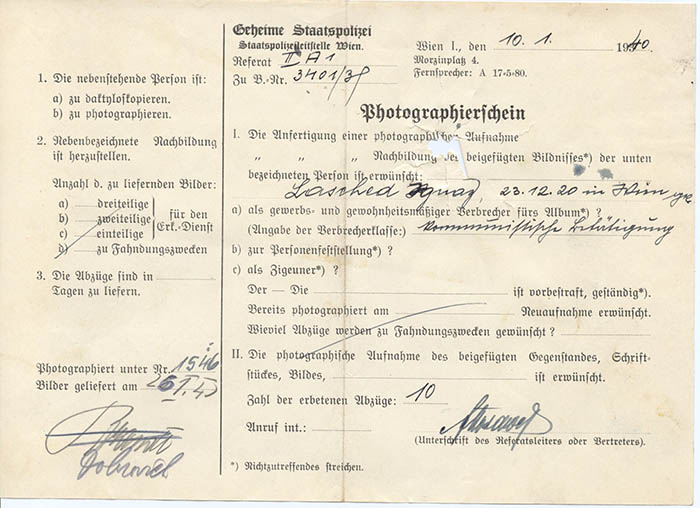 1. Die nebenstehende Person ist:
a) zu daktyloskopieren.
b) zu photographieren.
2. Nebenbezeichnete Nachbildung
ist herzustellen.
Anzahl d. zu liefernden Bilder:
a) dreiteilige
b) zweiteilige
c) einteilige
für den
Erk.-Dienst
d) zu Fahndungszwecken
3. Die Abzüge sind in
Tagen zu liefern.
Photographiert unter Nr. 1546
Bilder geliefert am
Geheime Staatspolizei
Staatspolizeileitstelle Wien.
Referat II A 1
Zu B.-Nr. 3401/39
Wien I., den 10. 1. 1940.
Morzinplatz 4.
Fernsprecher: A 17-5-80.
Photographierschein
I. Die Anfertigung einer photographischen Aufnahme
" " " Nachbildung des beigefügten Bildnisses*) der unten
bezeichneten Person ist erwünscht:
23.12.20 in Wien
a) als gewerbs- und gewohnheitsmäßiger Verbrecher fürs Album*) ?
(Angabe der Verbrecherklasse:) kommunistische Betätigung
b) zur Personenfeststellung*) ?
c) als Zigeuner*) ?
Der — Die ist vorbestraft, geständig*).
Bereits photographiert am Neuaufnahme erwünscht.
Wieviel Abzüge werden zu Fahndungszwecken gewünscht ?
II. Die photographische Aufnahme des beigefügten Gegenstandes, Schrift-
stückes, Bildes, ist erwünscht.
Zahl der erbetenen Abzüge: 10
Anruf int.:
(Unterschrift des Referatsleiters oder Vertreters).
*) Nichtzutreffendes streichen.